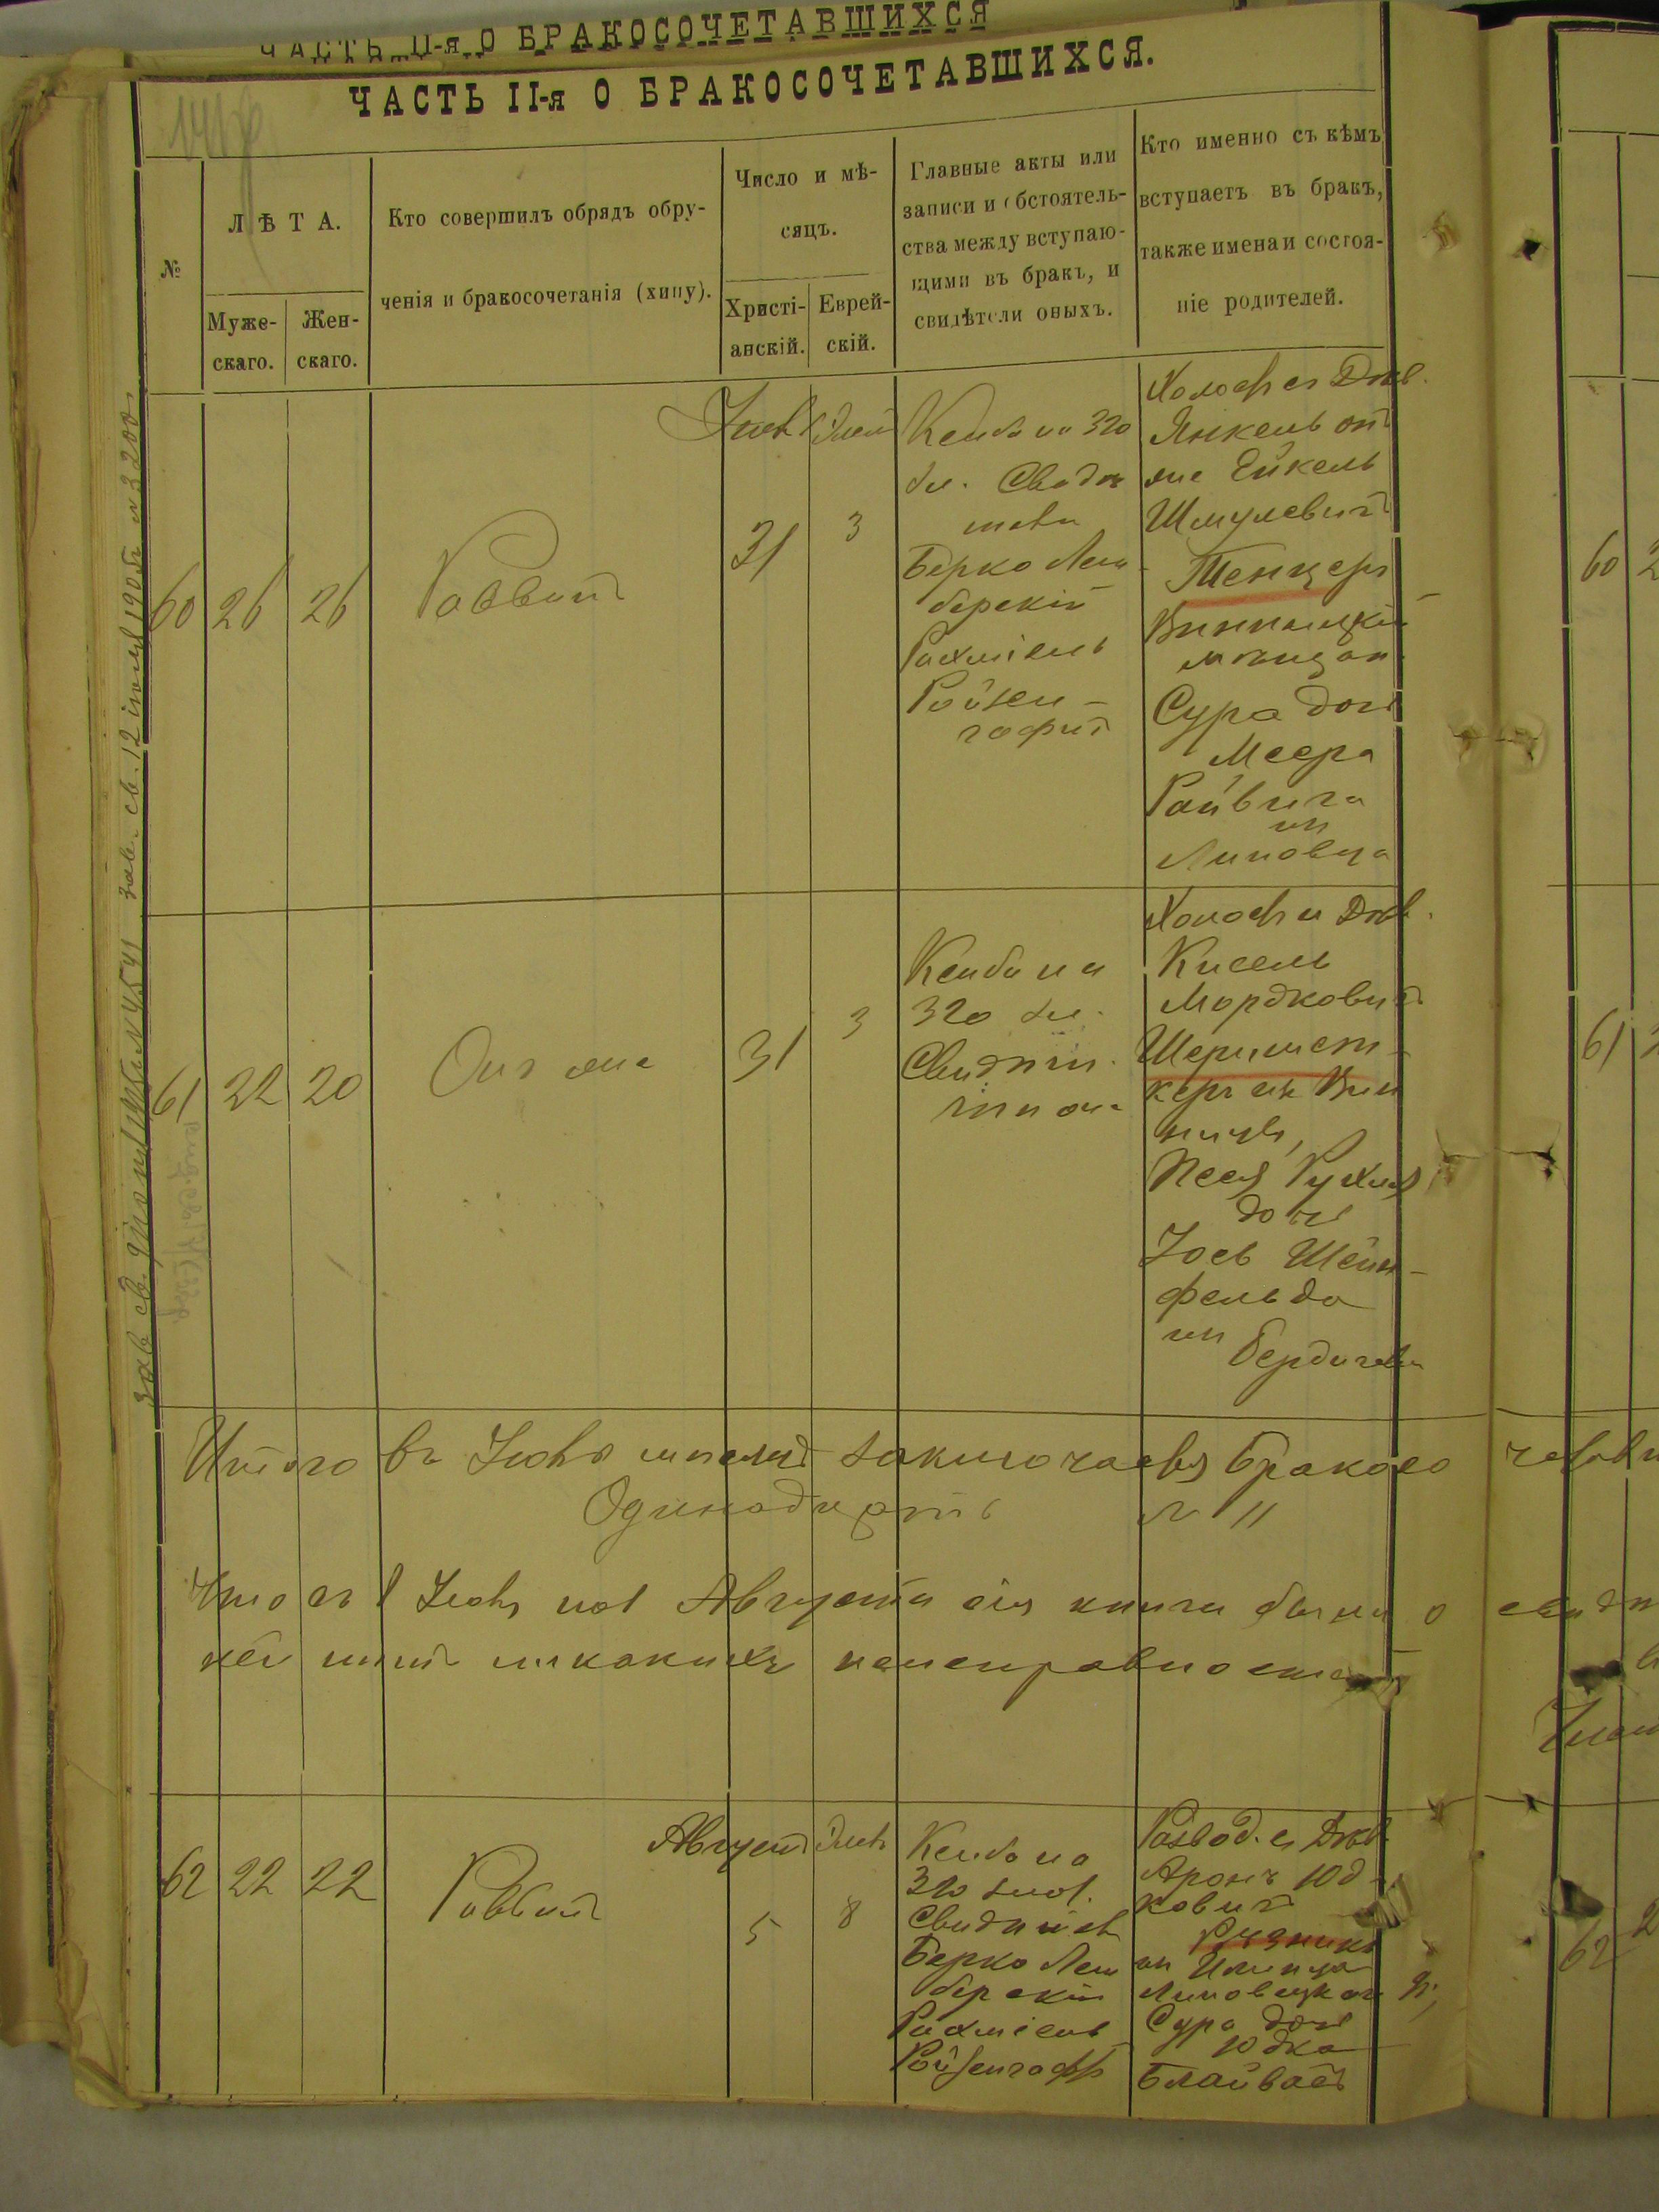 ЧАСТЬ II-я О БРАКОСОЧЕТАВШИХСЯ
ЧАСТЬ II-я О БРАКОСОЧЕТАВШИХСЯ.
№
ЛѢТА.
Муже-
скаго.
Жен-
скаго.
Кто совершилъ обрядъ обру-
ченія и бракосочетанія (хипу).
Число и мѣ-
сяцъ.
Христі-
анскій.
Еврей-
скій.
Главные акты или
записи и обстоятель-
ства между вступаю-
щими въ бракъ, и
свидѣтели оныхъ.
Кто именно съ кѣмъ
вступаетъ въ бракъ,
также имена и состоя-
ніе родителей.
60
26
26
Раввинъ
31
3
на 320
Берко Лем-
берскій
Рахміель
Ройзен-
гафтъ
Холостъ съ Дѣв.
Янкель онъ
же Ейкель
Шмулевичъ
Тенцеръ
Винницкій
мѣщан.
Сура дочь
Меера
Райвича
изъ
Липовца
61
22
20
Онъ же
31
3
на
320 зл.
Свидѣт.
тѣ же
Холостъ съ Дѣв.
Кисель
Мордковичъ
изъ Вин
ницы,
Песя Рухля
дочь
Іосъ Шейн-
фельда
изъ
Бердичева
Итого въ Іюлѣ мѣсяцѣ заключаевя бракосо
Одинадцать № 11
Что съ 1 Іюля по 1 Августа сія книга была о
ней нѣтъ никакихъ неисправностей
62
22
22
Раввинъ
Августъ
5
8
на
320 злот.
Берко Лем
берскій
Рахміель
Ройзенгафтъ
Развод. съ Дѣв.
Аронъ Юд-
ковичъ
Рѣзникъ
изъ Илинца
Липовецкаго у,
Сура дочь
Юдка
Блайвасъ
60
61
62
зав. св. 12 іюля 1905 г. № 3200